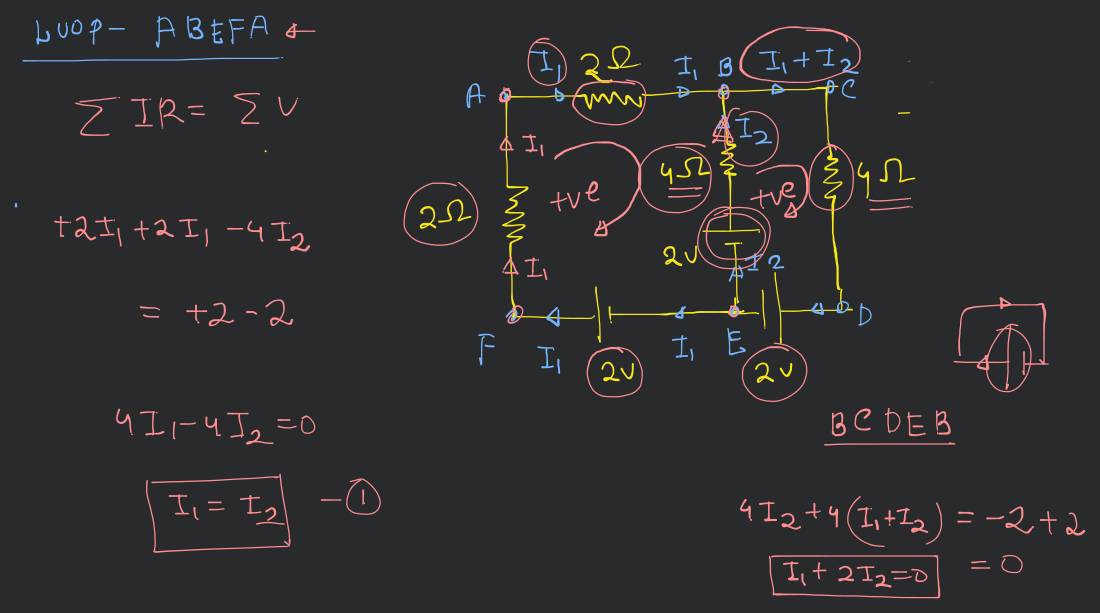 LOOP- ABEFA
∑ IR = ∑ V
+2I₁ +2I₁ -4I₂
= +2 -2
4I₁-4I₂=0
I₁ = I₂ -①
I₁ 2Ω I₁ B I₁+I₂
A C
I₁ I₂
4Ω 4Ω
2Ω +ve +ve
2V
I₁ I2
D
F I₁ I₁ E
2V 2V
BCDEB
4I₂+4(I₁+I₂) = -2+2
I₁+2I₂=0 = 0